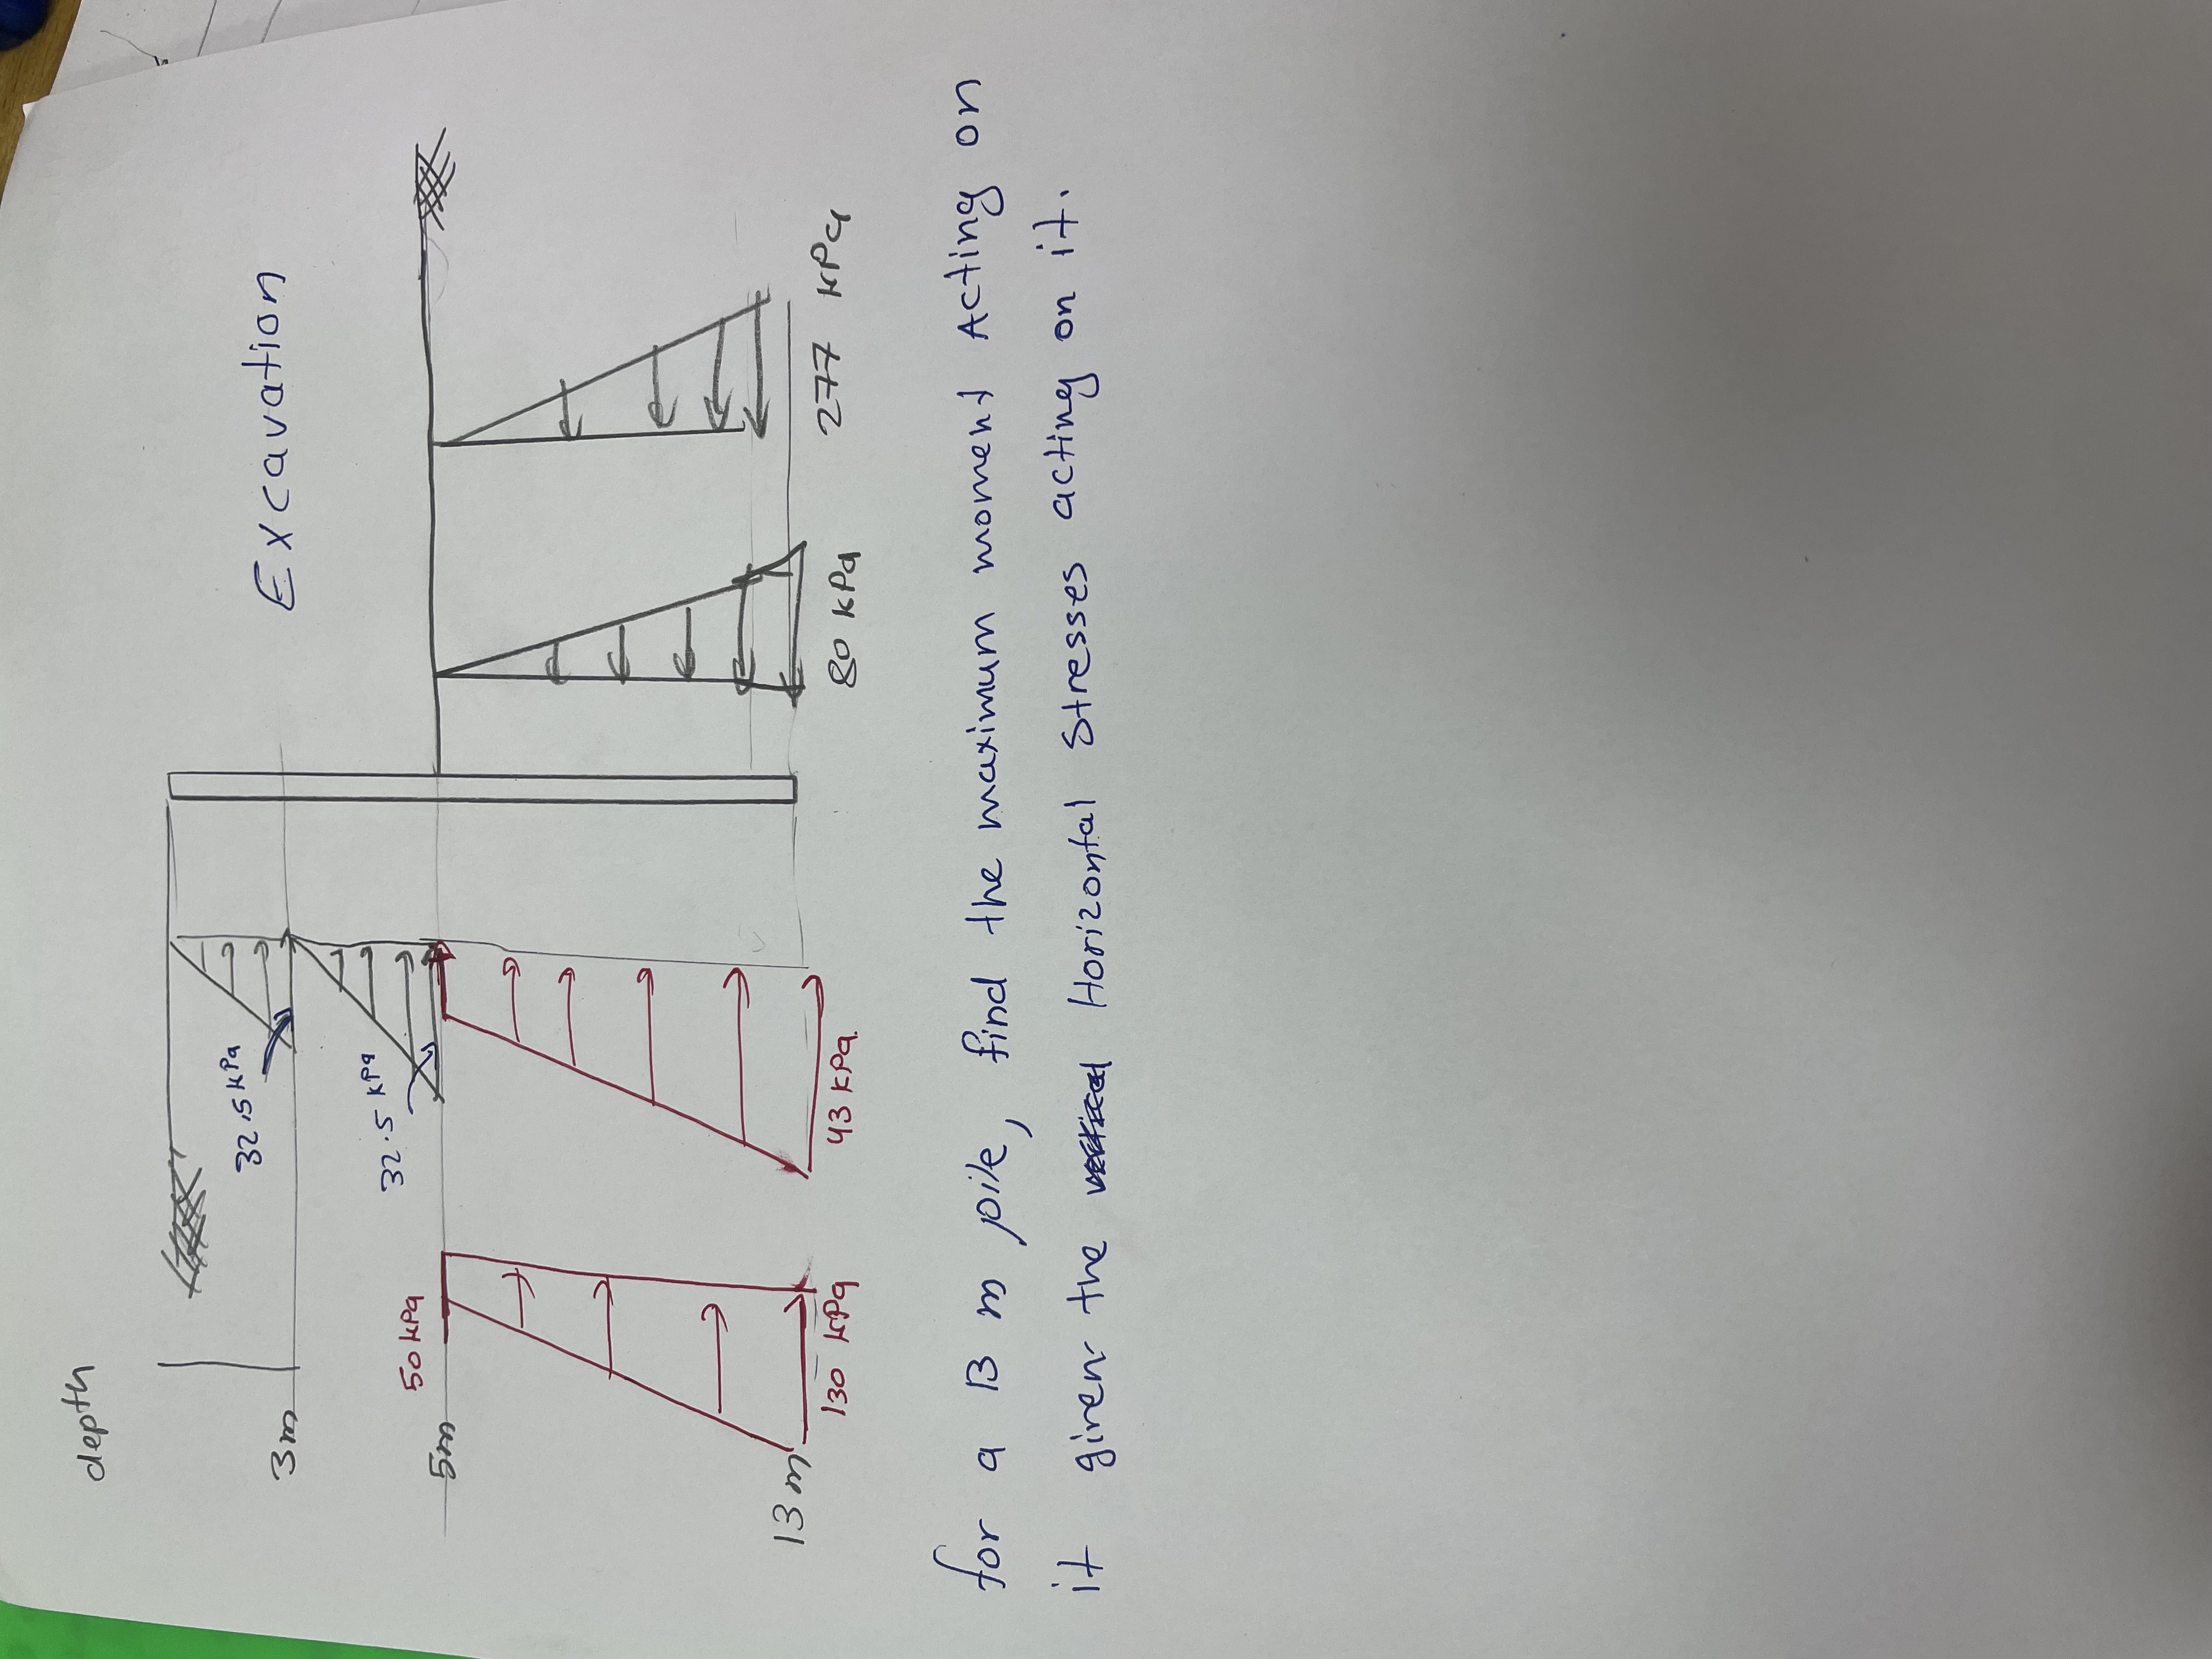 depth
Excavation
3m
32.5 kPa
5m
50 kPa
32.5 kPa
13 m
130 kPa
43 kPa
80 kPa
277 kPa
for a 13 m pile, find the maximum moment Acting on
it given the Horizontal Stresses acting on it.